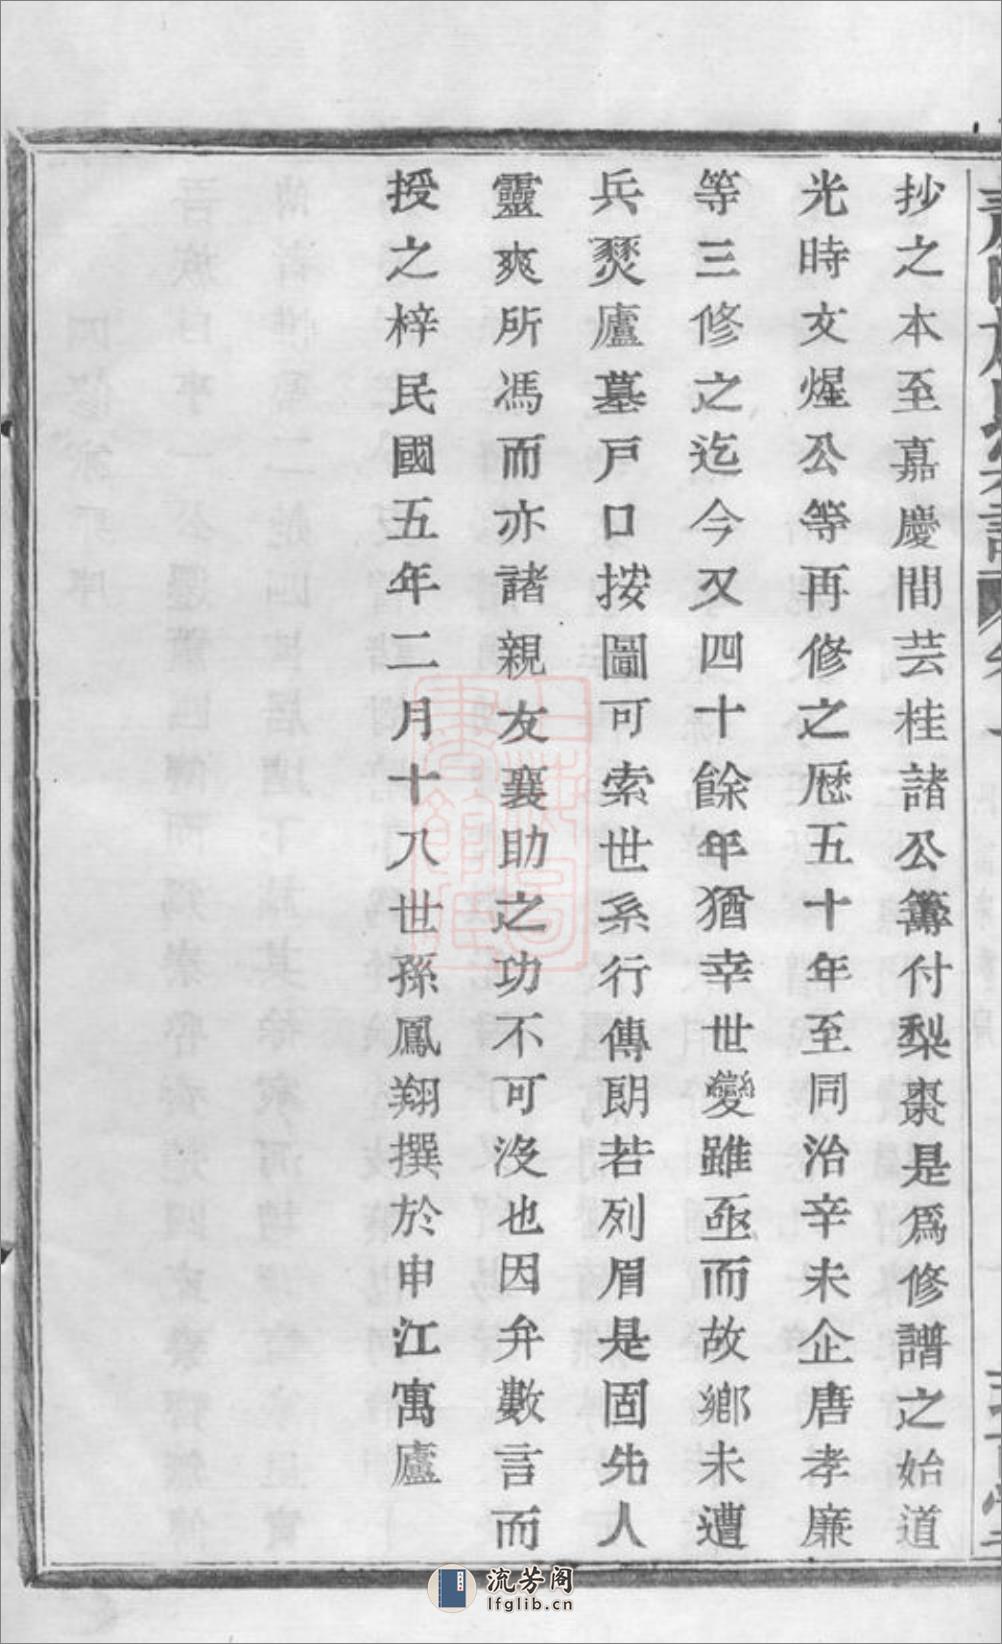 抄之本至嘉慶間芸桂諸公籌付梨棗是爲修譜之始道
光時文煋公等再修之歷五十年至同治辛未企唐孝廉
等三修之迄今又四十餘年猶幸世變雖亟而故鄉未遭
兵燹廬墓戸口按圖可索世系行傳朗若列眉是固先人
靈爽所馮而亦諸親友襄助之功不可沒也因弁數言而
授之梓民國五年二月十八世孫鳳翔撰於申江寓廬
流芳阁
lfglib.cn